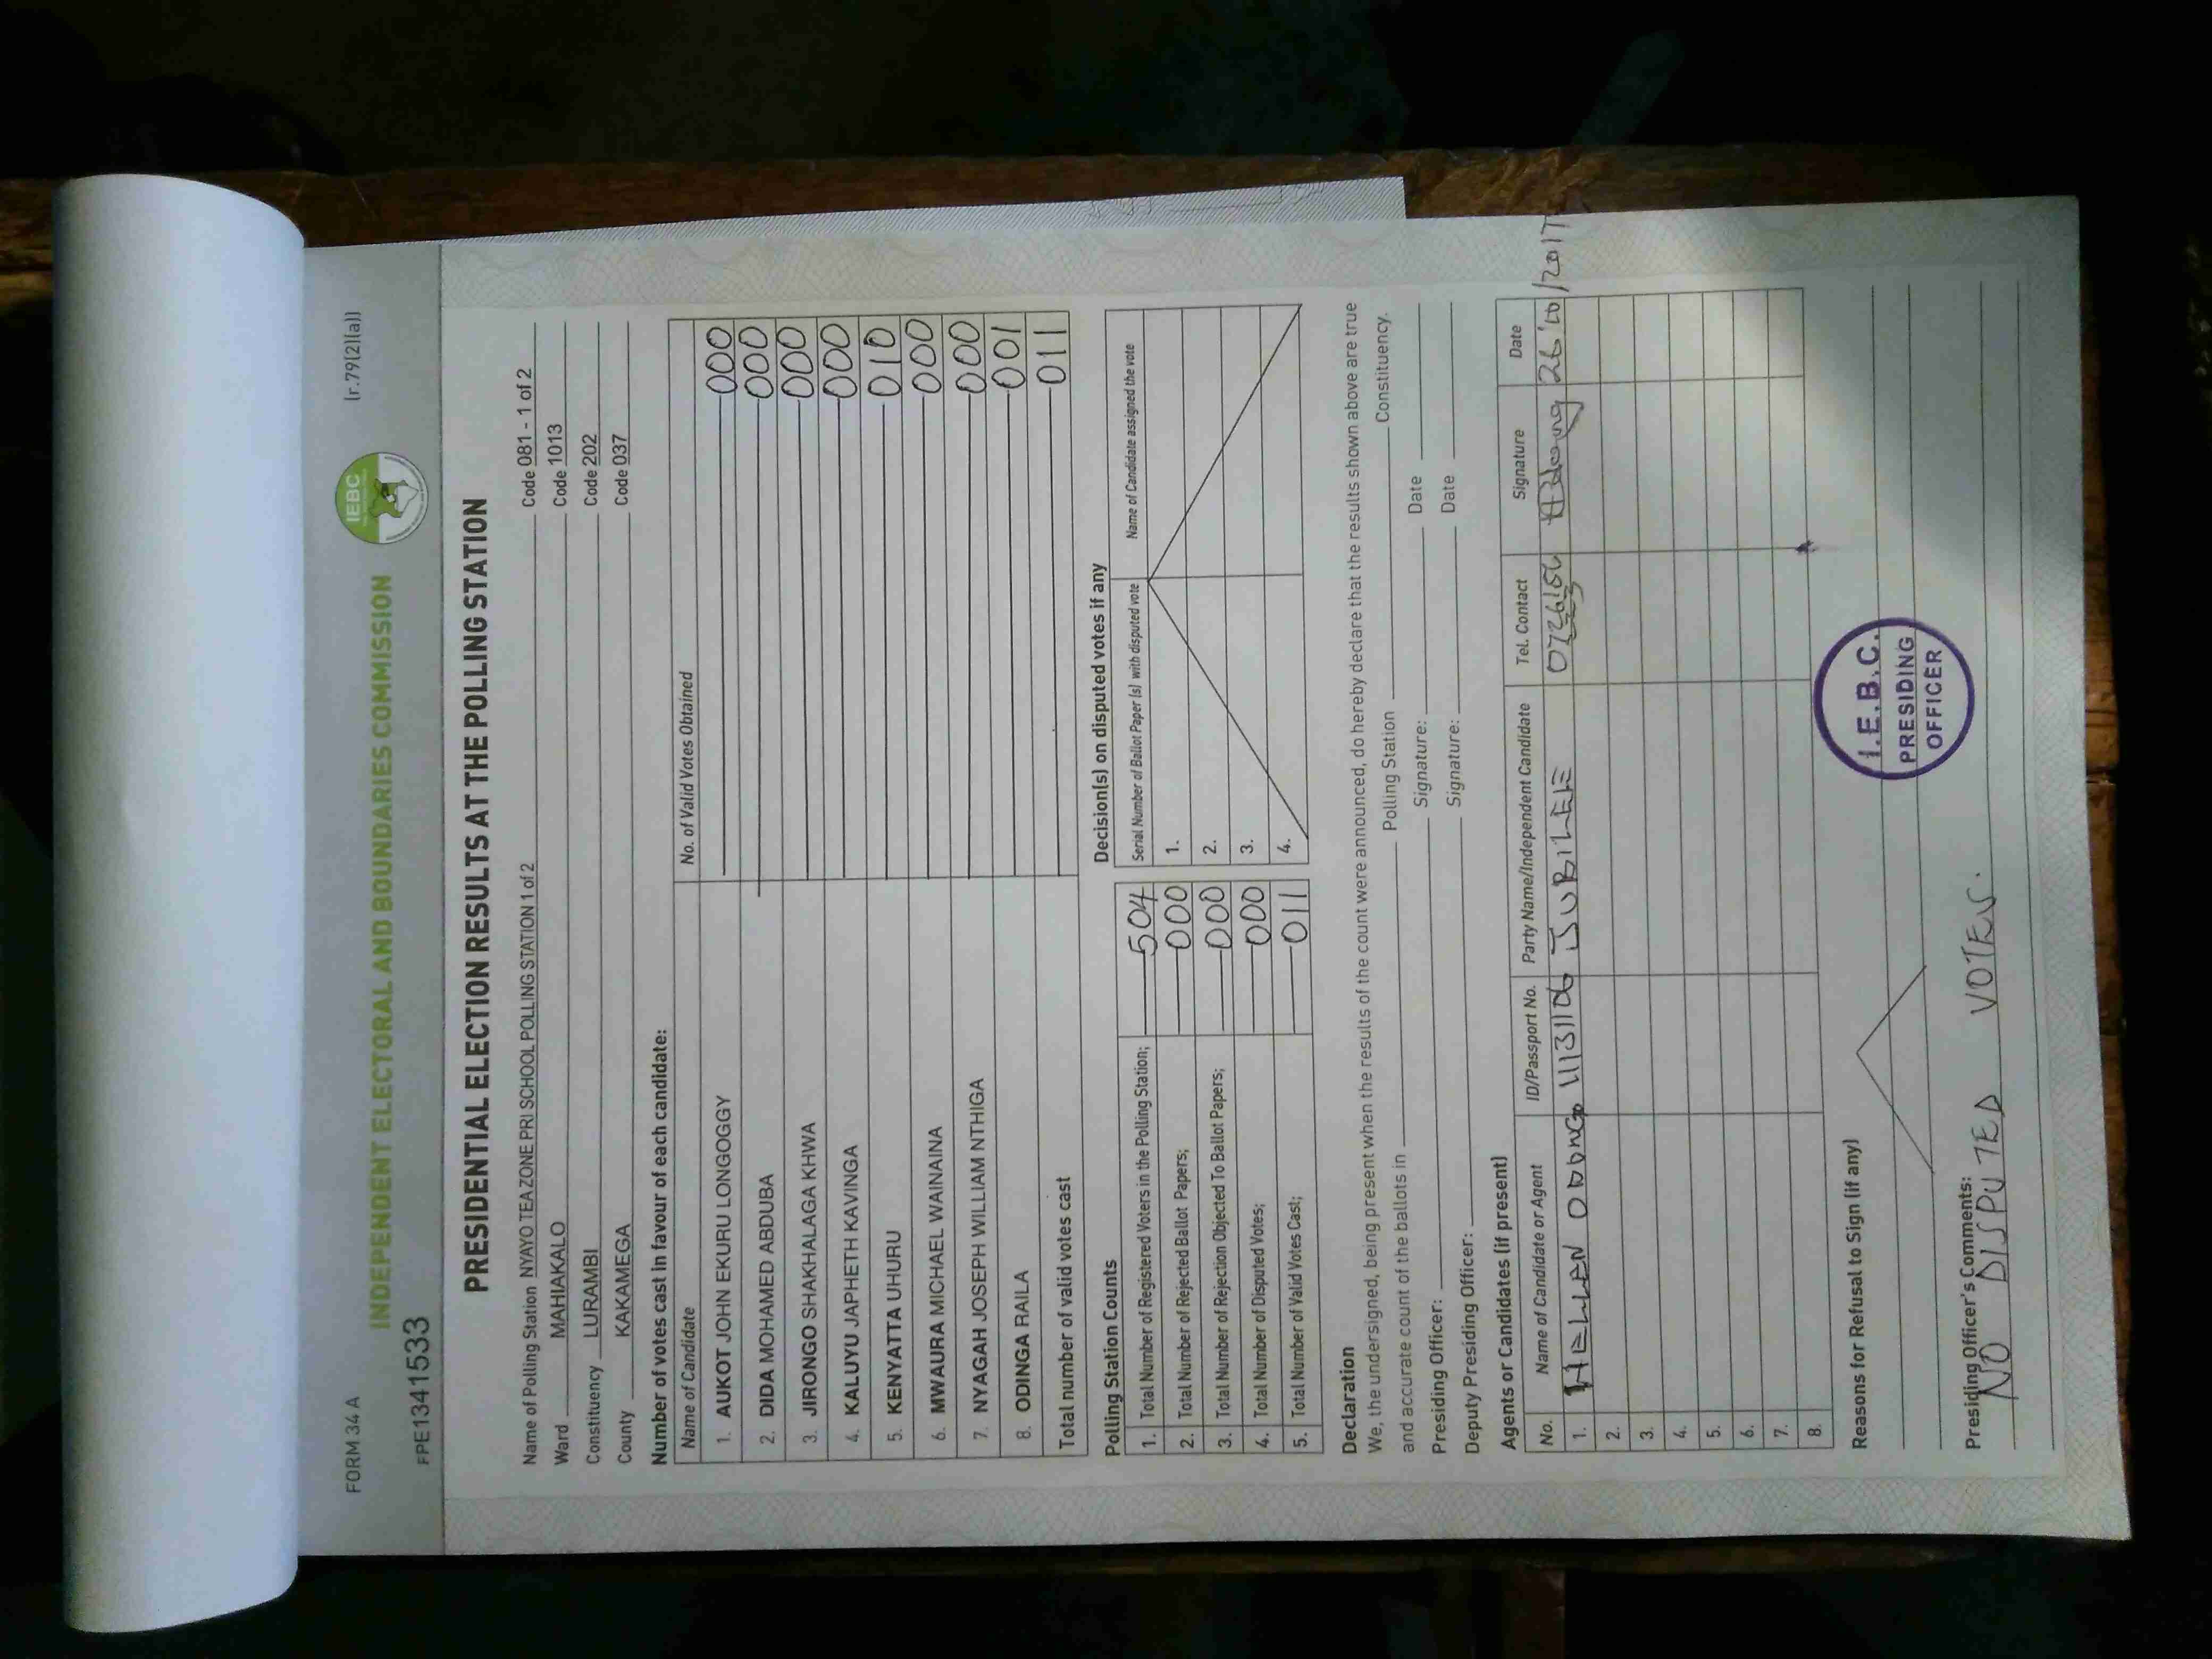 FORM 34 A
(r.79(2)(a))
INDEPENDENT ELECTORAL AND BOUNDARIES COMMISSION
IEBC
FPE1341533
PRESIDENTIAL ELECTION RESULTS AT THE POLLING STATION
Name of Polling Station NYAYO TEA ZONE PRI SCHOOL POLLING STATION 1 of 2 Code 081 - 1 of 2
Ward MAHIAKALO Code 1013
Constituency LURAMBI Code 202
County KAKAMEGA Code 037
Number of votes cast in favour of each candidate:
Name of Candidate No. of Valid Votes Obtained
1. AUKOT JOHN EKURU LONGOGGY 000
2. DIDA MOHAMED ABDUBA 000
3. JIRONGO SHAKHALAGA KHWA 000
4. KALUYU JAPHETH KAVINGA 000
5. KENYATTA UHURU 010
6. MWAURA MICHAEL WAINAINA 000
7. NYAGAH JOSEPH WILLIAM NTHIGA 000
8. ODINGA RAILA 001
Total number of valid votes cast 011
Polling Station Counts
1. Total Number of Registered Voters in the Polling Station; 504
2. Total Number of Rejected Ballot Papers; 000
3. Total Number of Rejection Objected To Ballot Papers; 000
4. Total Number of Disputed Votes; 000
5. Total Number of Valid Votes Cast; 011
Decision(s) on disputed votes if any
Serial Number of Ballot Paper (s) with disputed vote Name of Candidate assigned the vote
1.
2.
3.
4.
Declaration
We, the undersigned, being present when the results of the count were announced, do hereby declare that the results shown above are true
and accurate count of the ballots in Polling Station Constituency.
Presiding Officer: Signature: Date
Deputy Presiding Officer: Signature: Date
Agents or Candidates (if present)
No. Name of Candidate or Agent ID/Passport No. Party Name/Independent Candidate Tel. Contact Signature Date
1. HELLEN ODONGO 11131106 JUBILEE 26/10/2017
2.
3.
4.
5.
6.
7.
8.
Reasons for Refusal to Sign (if any)
I.E.B.C.
PRESIDING
OFFICER
Presiding Officer's Comments:
NO DISPUTED VOTES.